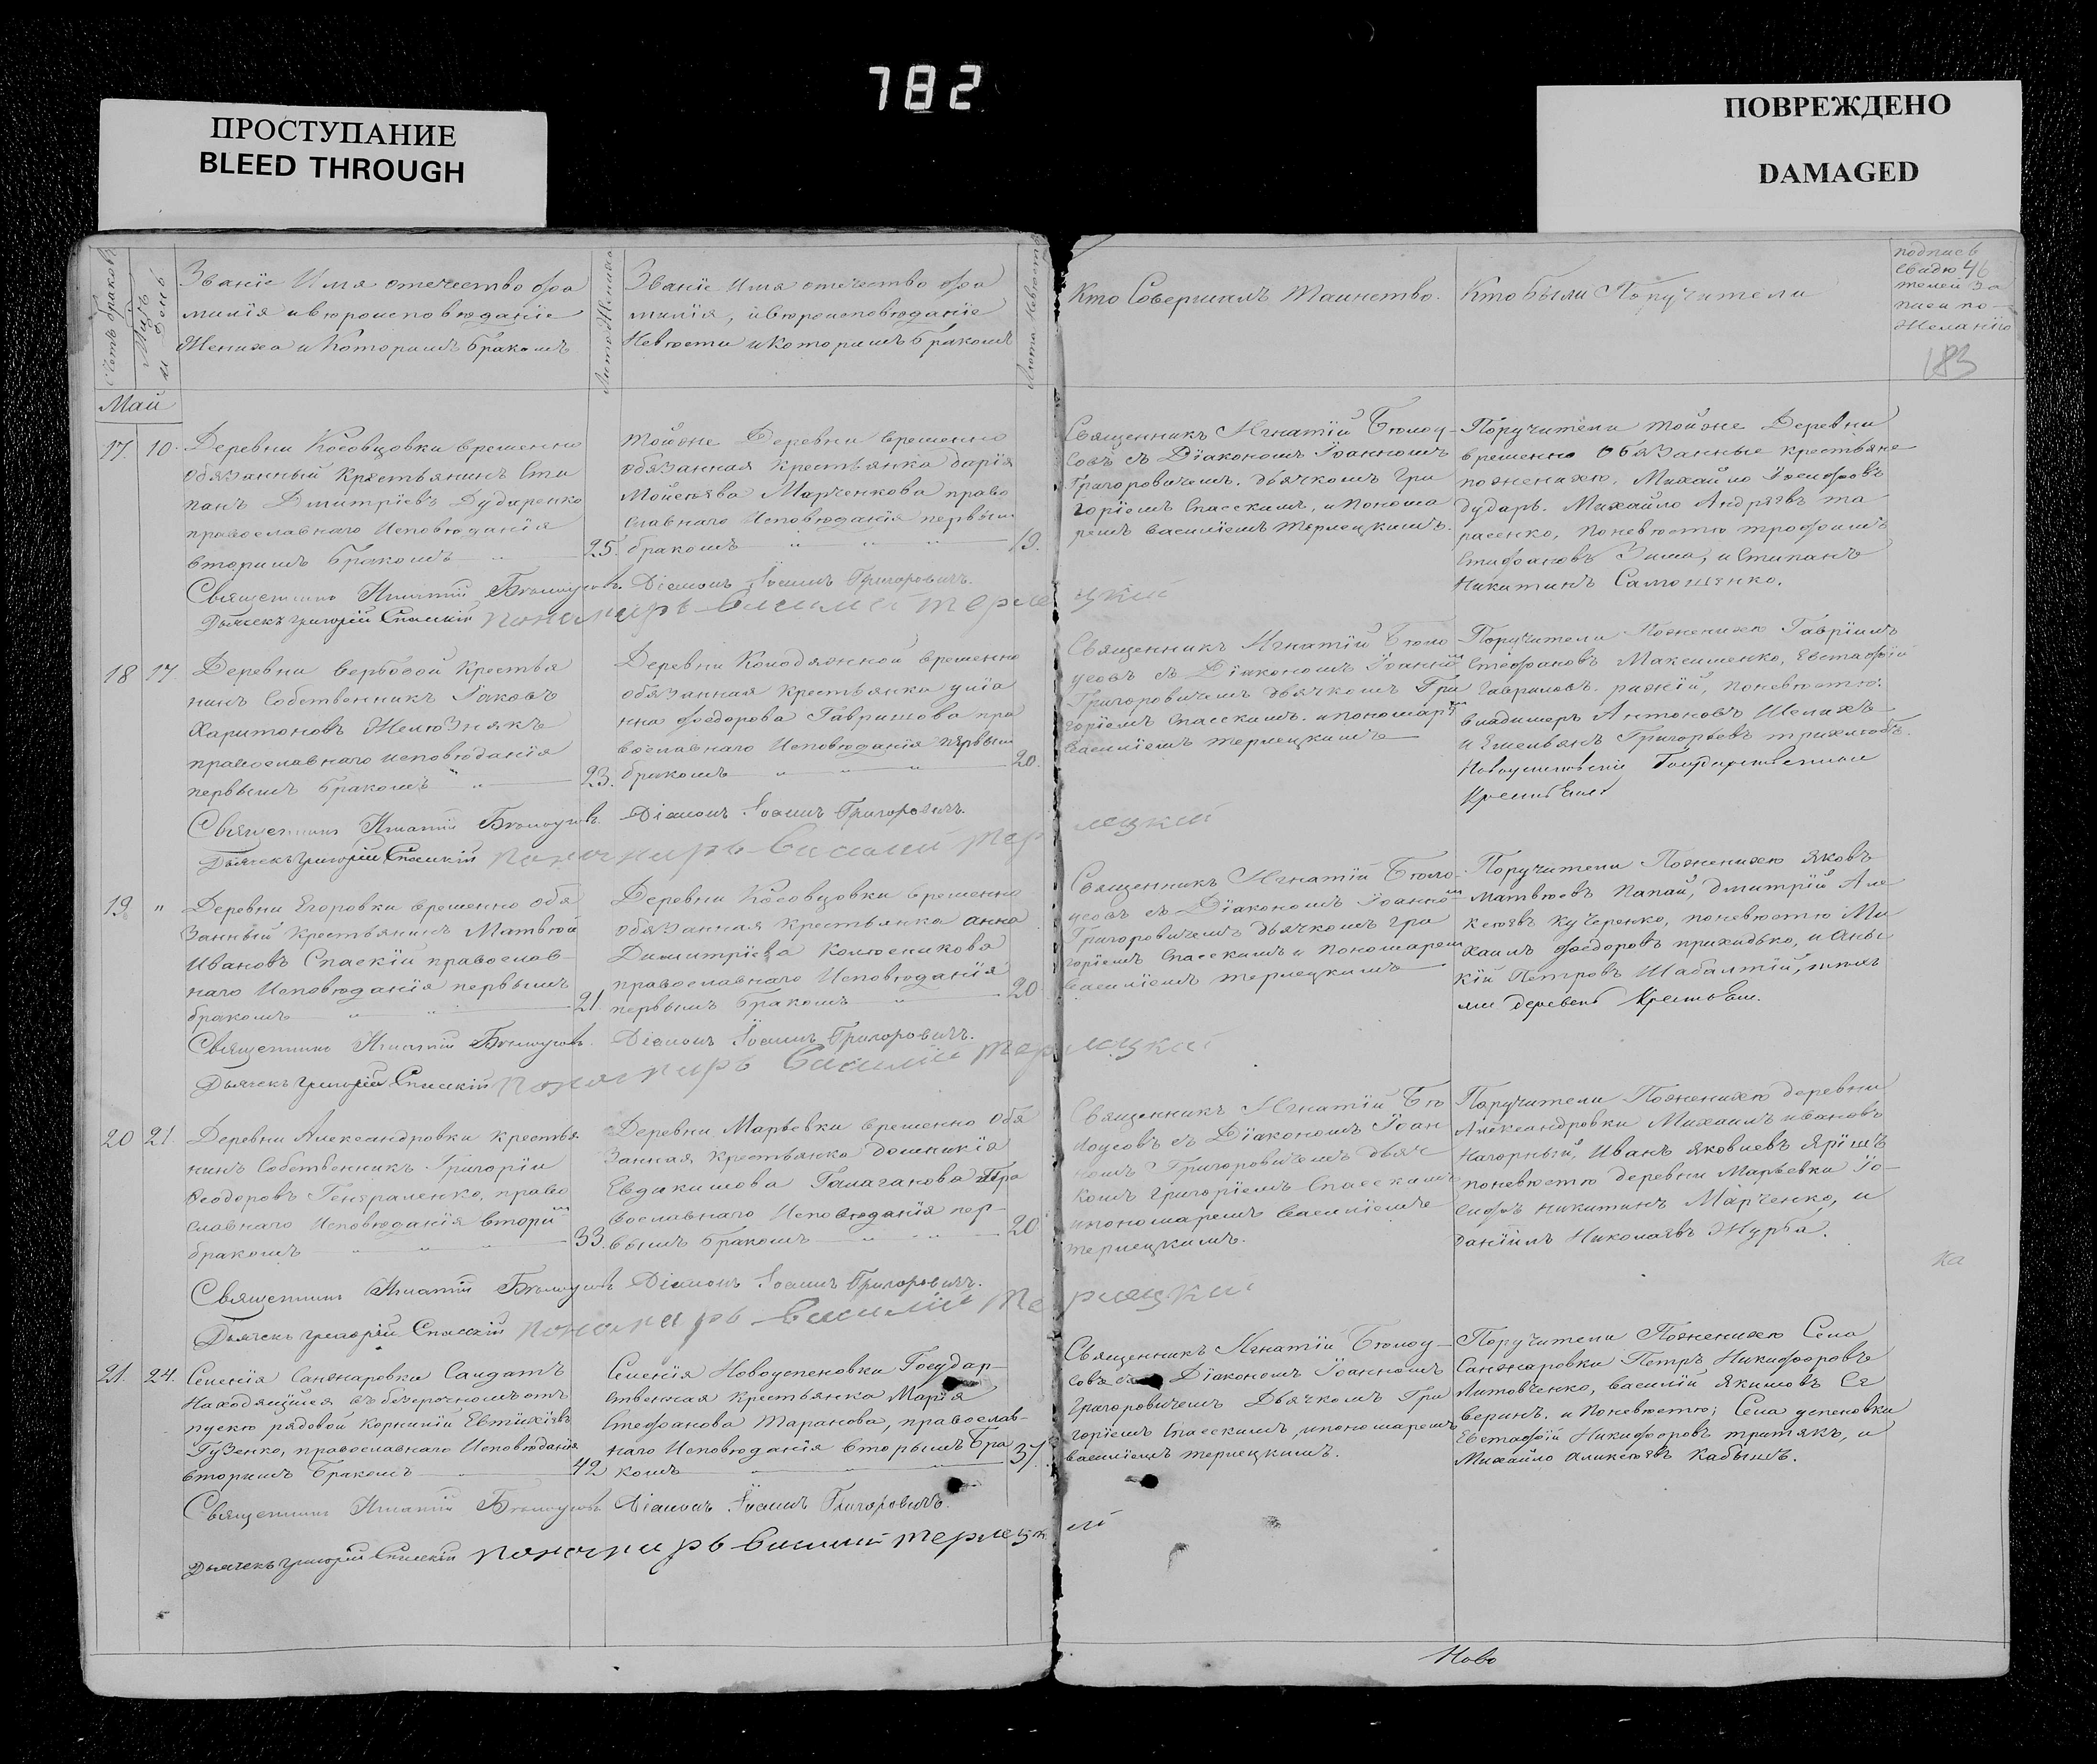 782
ПРОСТУПАНИЕ
BLEED THROUGH
ПОВРЕЖДЕНО
DAMAGED
Званіе Имя отечество фа
милія и вѣроисповѣданіе
Жениха и Которимъ бракомъ
Званіе имя отечество фа
милія, и вѣроисповѣданіе
Невѣсти и Которимъ бракомъ
Кто Совершалъ Таинство.
Кто были Поручители
подпись
свидѣ
телей за
писи по
Желанію
46
183
Май
17 10.
Деревни Косовцовки временно
обязанный Крестьянинъ Сте
панъ Дмитріевъ Дударенко
православнаго Исповѣданія
вторимъ бракомъ
25.
тойже Деревни временно
обязанная Крестьянка дарія
Марченкова право
славнаго Исповѣданія первым
бракомъ
19.
Священникъ Игнатій Бѣлоу
совъ съ Діакономъ Іоанномъ
Григоровичемъ. дьячкомъ Гри
горіемъ Спасскимъ, и понома
ремъ василіемъ терлецкимъ.
Поручители тойже Деревни
временно Обязанные крестьяне
поженихѣ, Михайло Іосифовъ
дударь. Михайло Андрѣевъ та
расенко, поневѣстѣ трофимъ
Стефановъ Зима, и Степанъ
Никитинъ Самошенко.
Священникъ Игнатій Бѣлоусовъ. Діаконъ Іоаннъ Григоровичъ.
Дьячекъ Григорій Спасскій пономарь Василій терлецкій
18 17
Деревни вербовой Крестья
нинъ Собственникъ Іаковъ
Харитоновъ Желѣзнякъ
православнаго исповѣданія
первымъ бракомъ
23.
Деревни Колодяжной временно
обязанная Крестьянка уліа
на Федорова Гаврилова пра
вославнаго Исповѣданія первым
бракомъ
20.
Священникъ Игнатій Бѣло
усовъ съ Діакономъ Іоанном
Григоровичемъ дьячкомъ Гри
горіемъ Спасскимъ. и пономарем
Василіемъ терлецкимъ
Поручители Поженихѣ Гавріилъ
Стефановъ Максименко, Евстафій
Гавриловъ. рижій, поневѣстѣ:
владимеръ Антоновъ Шелихъ
и Емельянъ Григорьевъ
Государственные
Крестьяне
Священникъ Игнатій Бѣлоусовъ. Діаконъ Іоаннъ Григоровичъ.
Дьячекъ Григорій Спасскій пономарь Василій терлецкій
19 "
Деревни Егоровки временно обя
занный Крестьянинъ Матвѣй
Ивановъ Спаскій православ
наго Исповѣданія первымъ
бракомъ
21.
Деревни Косовцовки временно
обязанная Крестьянка анна
Димитріева Колѣсникова
православнаго Исповѣданія
первымъ бракомъ
20
Священникъ Игнатій Бѣло
усовъ съ Діакономъ Іоанном
Григоровичемъ дьячкомъ гри
горіемъ Спасскимъ и Пономарем
василіемъ терлецкимъ
Поручители Поженихѣ Яковъ
Матвѣевъ Папай, Дмитрій Але
ксѣевъ Кучеренко, поневѣстѣ Ми
хаилъ Федоровъ приходько, и
Петровъ
деревень Крестьяне.
Священникъ Игнатій Бѣлоусовъ. Діаконъ Іоаннъ Григоровичъ.
Дьячекъ Григорій Спасскій пономарь Василій терлецкій
20 21.
Деревни Александровки крестья
нинъ Собственникъ Григорій
Феодоровъ Генераленко, право
славнаго Исповѣданія вторим
бракомъ
33.
Деревни Марьевки временно Обя
занная Крестьянка домникія
Евдакимова Галаганова Пра
вославнаго Исповѣданія пер
вымъ бракомъ
20
Священникъ Игнатій Бѣ
лоусовъ съ Діакономъ Іоан
номъ Григоровичемъ дьяч
комъ григоріемъ Спасскимъ
и пономаремъ василіемъ
терлецкимъ.
Поручители Поженихѣ деревни
Александровки Михаилъ ивановъ
Нагорный, Иванъ Яковлевъ
поневѣстѣ деревни Марьевки Іо
сифъ никитинъ Марченко, и
Даніилъ Николаевъ Журба.
ка
Священникъ Игнатій Бѣлоусовъ Діаконъ Іоаннъ Григоровичъ.
Дьячекъ Григорій Спасскій пономарь Василій терлецкій
21. 24.
Селенія Санжаровки Салдатъ
Находящійся въ безсрочномъ от
пускѣ рядовой Корнилій Евтихіевъ
Гузенко, православнаго Исповѣданія
вторимъ бракомъ
42
Селенія Новоуспеновки Государ
ственная Крестьянка Марія
Стефанова Таранова, православ
наго Исповѣданія вторымъ Бра
комъ
37.
Священникъ Игнатій Бѣлоу
совъ съ Діакономъ Іоанномъ
Григоровичемъ Дьячкомъ Гри
горіемъ Спасскимъ, и пономаремъ
василіемъ терлецкимъ.
Поручители Поженихѣ Села
Санжаровки Петръ Никифоровъ
Литовченко, василій Якимовъ Се
веринъ. и Поневѣстѣ; Села успеновки
Евстафій Никифоровъ третякъ, и
Михайло аликсѣевъ Кабышъ.
Священникъ Игнатій Бѣлоусовъ Діаконъ Іоаннъ Григоровичъ.
Дьячекъ Григорій Спасскій пономарь Василій терлецкій
Ново